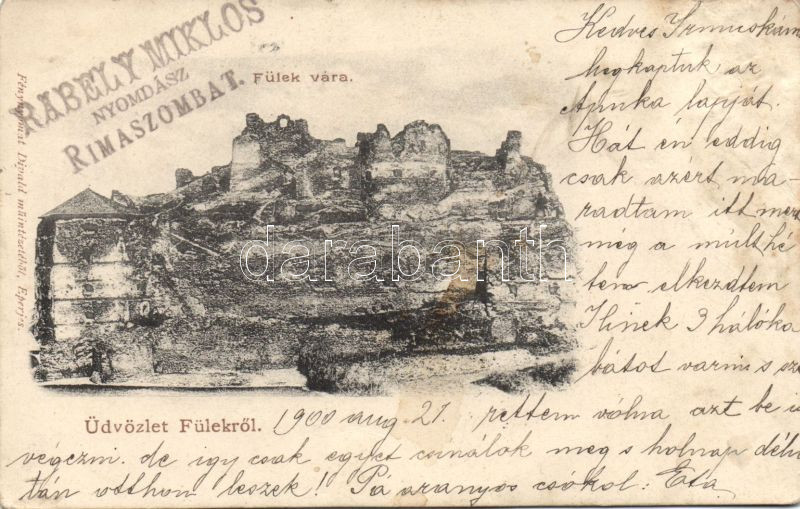 RABELY MIKLÓS
NYOMDÁSZ
RIMASZOMBAT.
Fülek vára.
Fénynyomat Divald műintézetéből, Eperjes.
Kedves Irmuskám
megkaptuk az
Apuka lapját.
Hát én eddig
csak azért ma-
radtam itt mert
még a múlt hé
ten elkezdtem
Ilinek 3 hálóka
bátot varrni s sze
darabanth
Üdvözlet Fülekről.
1900 aug 21. rettem vólna azt be is
végezni. de igy csak egyet csinálok meg s holnap délu
tán otthon leszek! Pá aranyos csókol: Eta